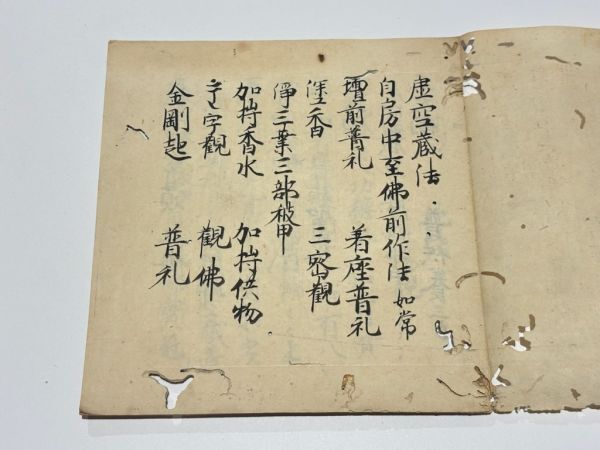 虚空蔵法
自房中至佛前作法如常
壇前普礼 着座普礼
塗香 三密觀
淨三業三部被甲
加持香水 加持供物
字觀 觀佛
金剛起 普礼